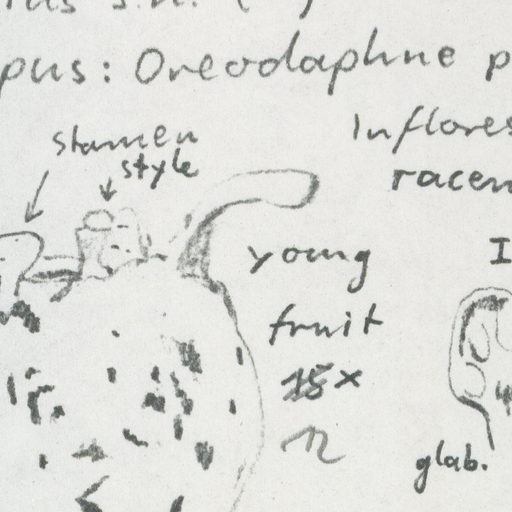 pus: Oreodaphne p
stamen
style
Inflores
racem
young
fruit
15x
12
I
glab.